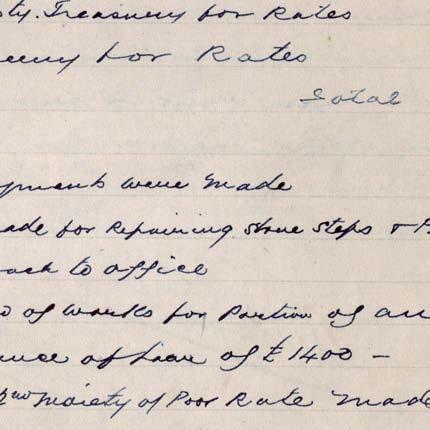 ty. Treasury for Rates
for Rates
Total
yments were made
ade for Repairing stone steps &
to office
of works for Portion of an
of Loan of £1400 -
2nd Moiety of Poor Rate made